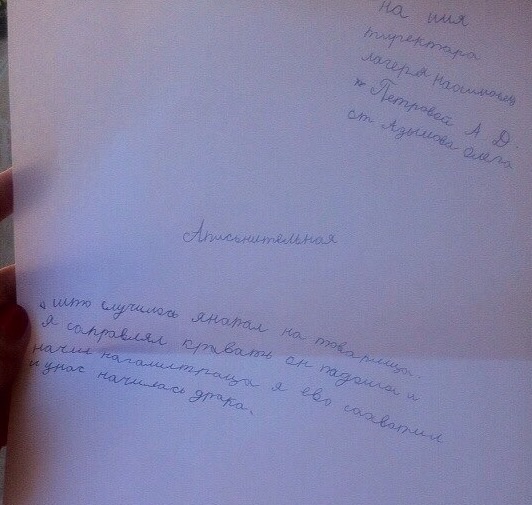 на имя
тиректара
лагеря
Петровой А Д.
от Языкова Олега
Аписьнительная
што случилось я напал на товарища.
Я саправлял кравать он падошол и
начил
я ево схватил
и унас началась драка.